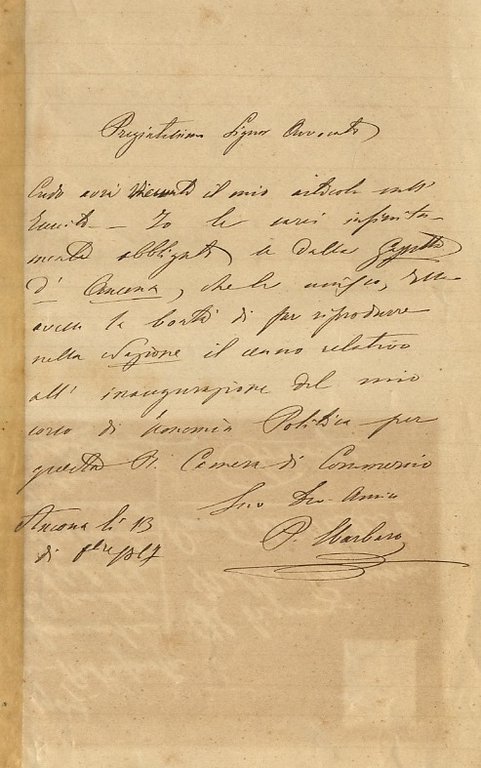 Pregiatissimo Signor Avvocato
Credo avrà ricevuto il mio articolo sull'
Io le sarei infinita-
mente obbligato se dalla Gazzetta
d'Ancona, che le unisco, Ella
avesse la bontà di far riprodurre
nella Nazione il cenno relativo
all' inaugurazione del mio
corso di Economia Politica per
questa R. Camera di Commercio
Suo Dev. Amico
P. Sbarbaro
Ancona li 13
di